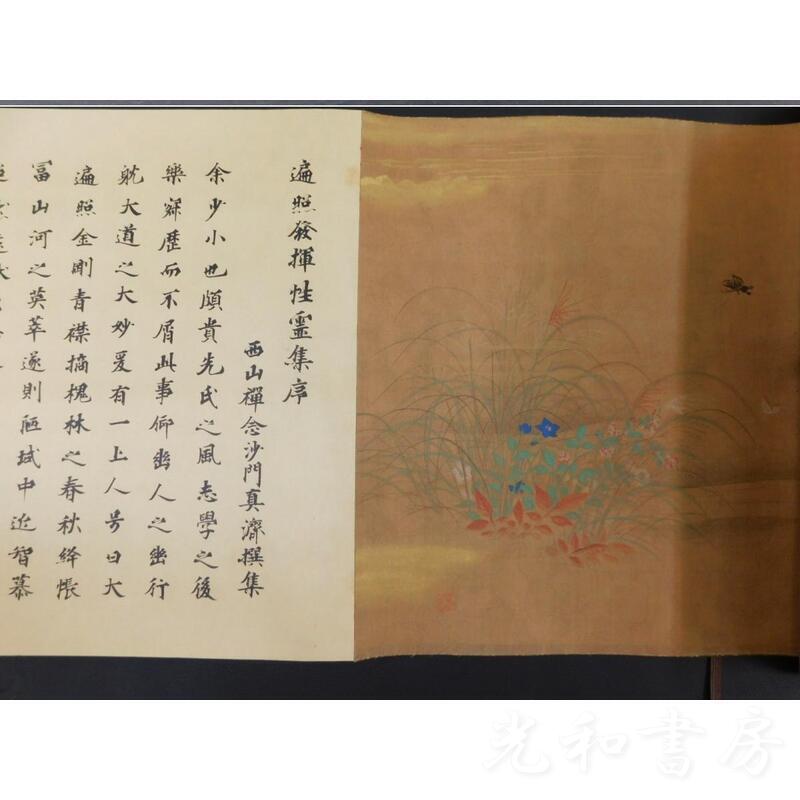 遍照發揮性靈集序
西山禪念沙門真濟撰集
余少小也頗貴先氏之風志學之後
樂寂歷而不屑此事仰幽人之幽行
躭大道之大妙爰有一上人号曰大
遍照金剛青襟摛槐林之春秋絳帳
冨山河之英萃遂則陋域中近智慕
光和書房